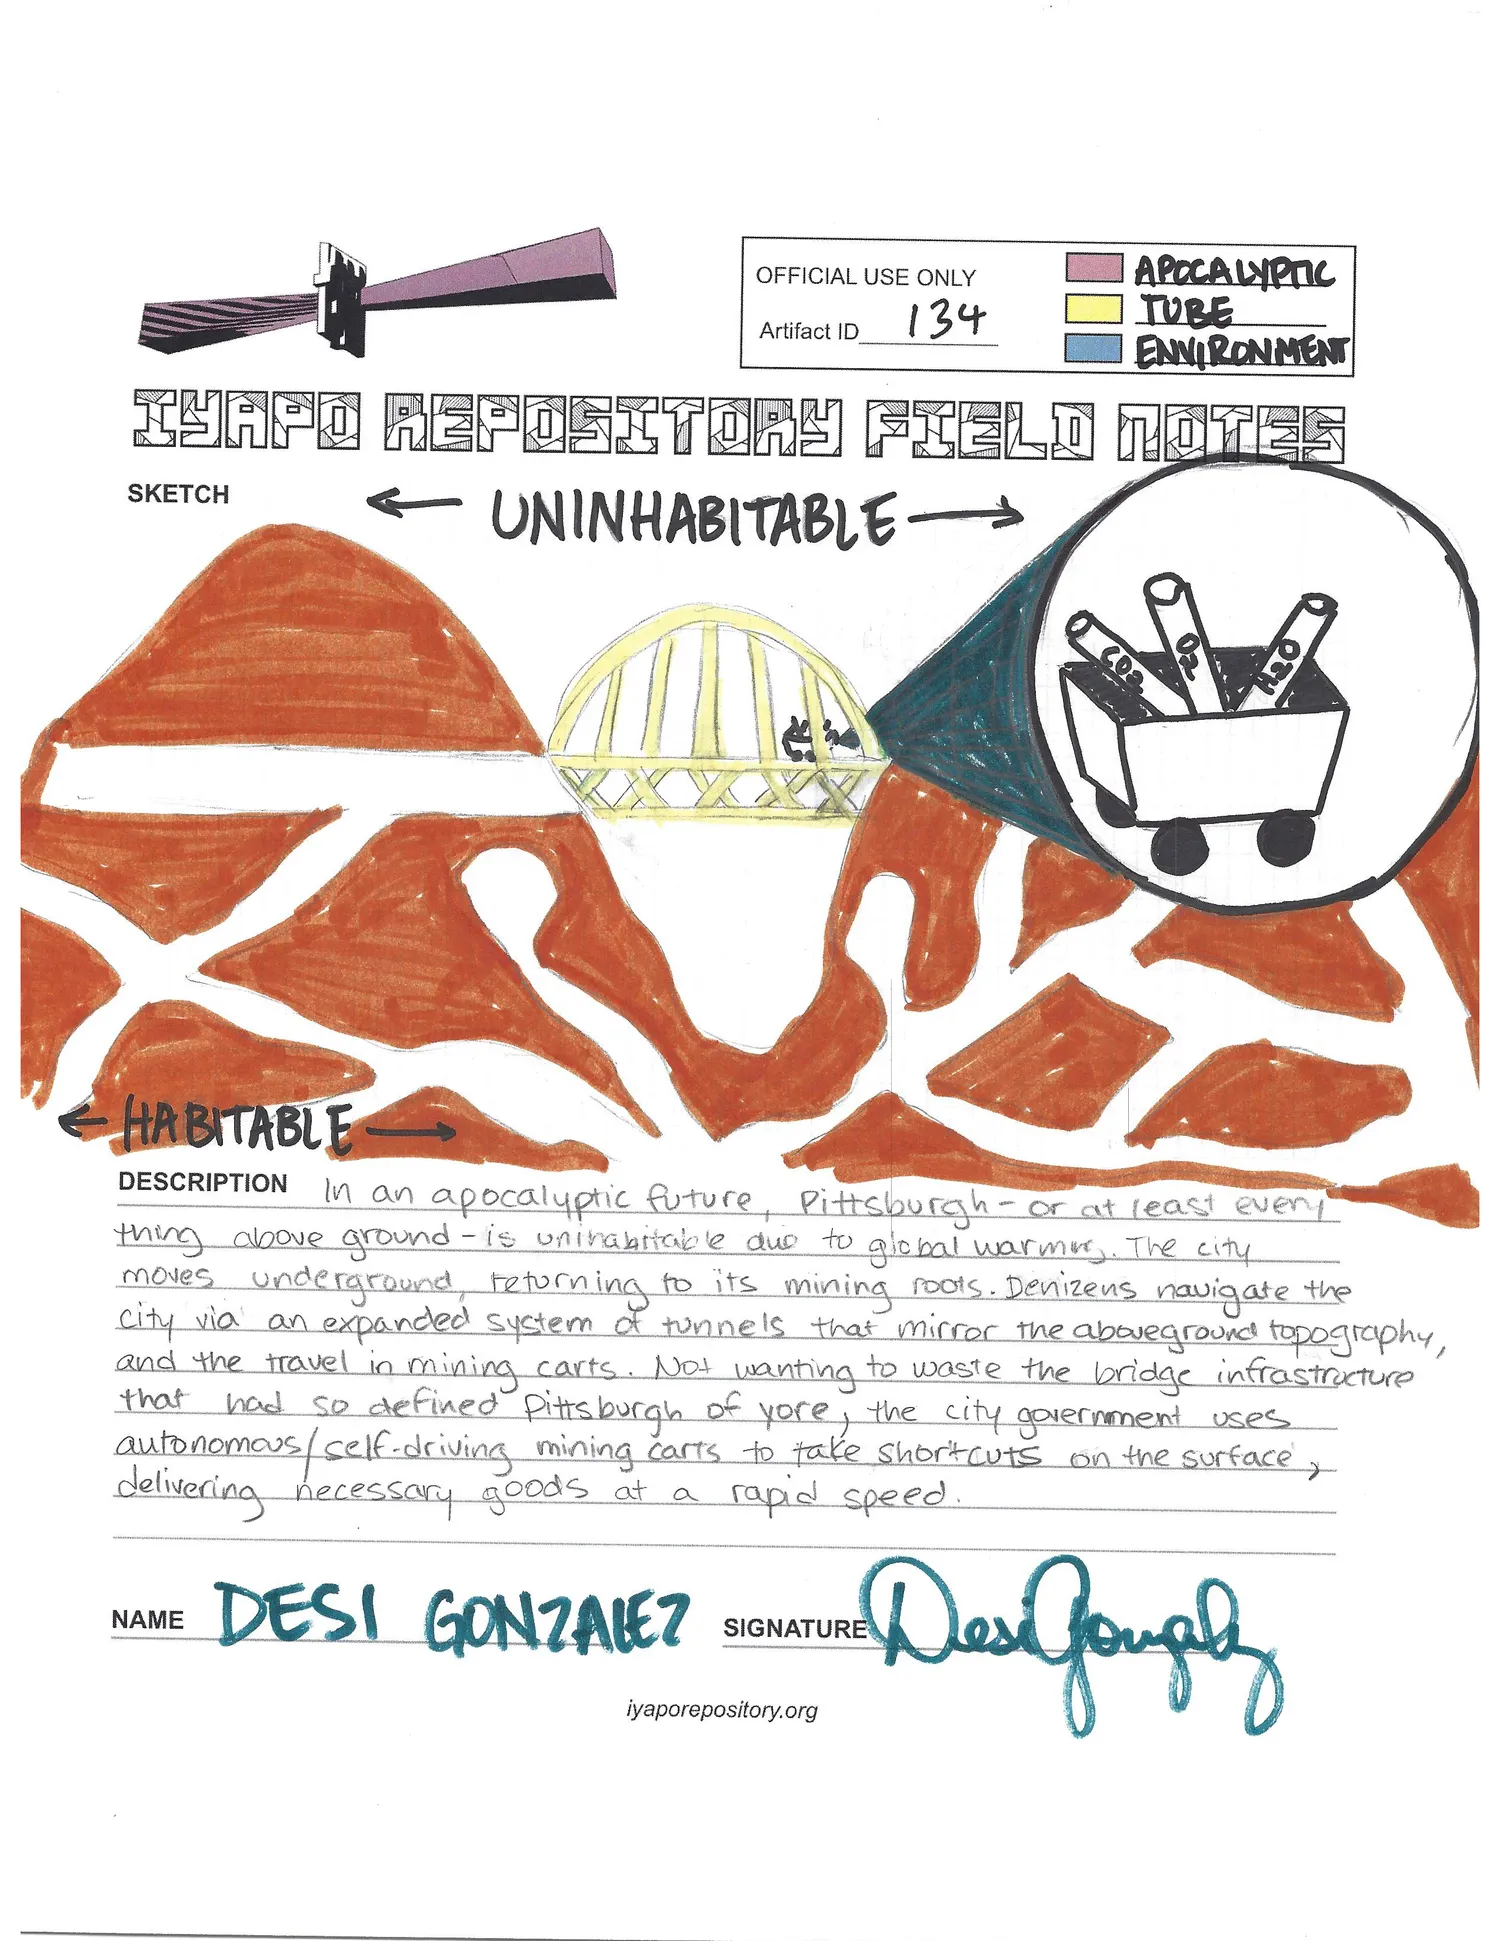 OFFICIAL USE ONLY
Artifact ID 134
APOCALYPTIC
TUBE
ENVIRONMENT
IYAPO REPOSITORY FIELD NOTES
SKETCH
← UNINHABITABLE →
CO2
O2
H2O
← HABITABLE →
DESCRIPTION In an apocalyptic future, Pittsburgh - or at least every
thing above ground - is uninhabitable due to global warming. The city
moves underground, returning to its mining roots. Denizens navigate the
city via an expanded system of tunnels that mirror the aboveground topography,
and the travel in mining carts. Not wanting to waste the bridge infrastructure
that had so defined Pittsburgh of yore, the city government uses
autonomous/self-driving mining carts to take shortcuts on the surface,
delivering necessary goods at a rapid speed.
NAME DESI GONZALEZ
SIGNATURE Desi Gonzalez
iyaporepository.org